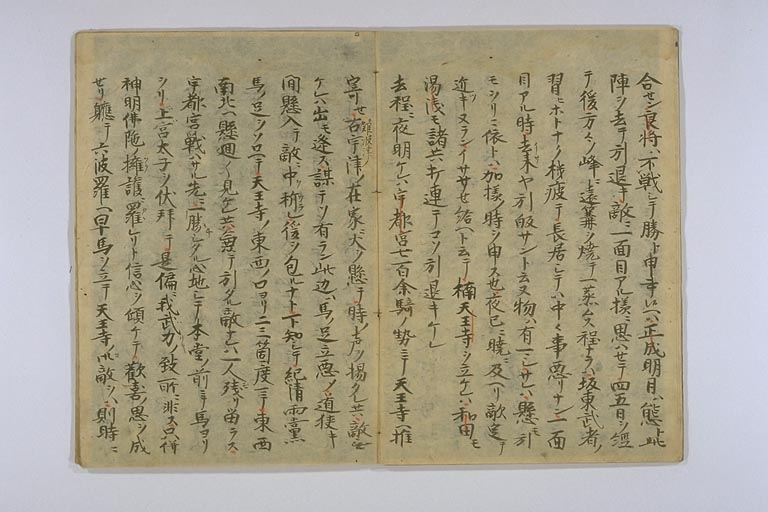 合セン良将ハ不戦シテ勝ト申事候ヘハ正成明日ハ態此
陣ヲ去テ引退キ敵ニ一面目アル様ニ思ハセテ四五日ヲ経
テ後方々ノ峰ニ遠篝ヲ焼テ一蒸ムス程ナラハ坂東武者ノ
習ヒホトナク機疲テ長居シテハ中々事悪リナン一面
目アル時去来ヤ引皈サント云ヌ物ハ有シサレハ懸モ引
モヲリニ依トハ加様時ヲ申ス也夜已ニ暁ニ及ヘリ敵定テ
近キヌランイササセ給ヘトテ楠天王寺ヲ立ケレハ和田
湯浅モ諸共ニ打連テコソ引退キケレ
去程ニ夜明ケレハ宇都宮七百余騎ノ勢ニテ天王寺ヘ推
寄セ古宇津ノ在家ニ火ヲ懸テ時ノ声ヲ揚タレ共敵ナ
ケレハ出モ逢ス謀テソ有ラン此辺ハ馬足立悪ノ道狭キ
間懸入テ敵ニ中ヲ称レ後ヲ包ルナト下知シテ紀清両党
馬ノ足ヲソロヘテ天王寺ノ東西ノ口ヨリ二三箇度ニテ東西
南北ヘ懸通シ見レ共無テ引タル敵ナレハ一人残リ留ラス
宇都宮戦ハサル先ニ一勝シタル心地シテ本堂ノ前ニテ馬ヨリ
ヲリ上宮太子ヲ伏拝テ是偏我武力ノ致所ニ非ス只併
神明佛陀ノ擁護ニ羅レリト信心ヲ傾ケテ歓喜ノ思ヲ成
セリ軈テ六波羅ヘ早馬ヲ立テ天王寺ノ敵ヲハ則時ニ